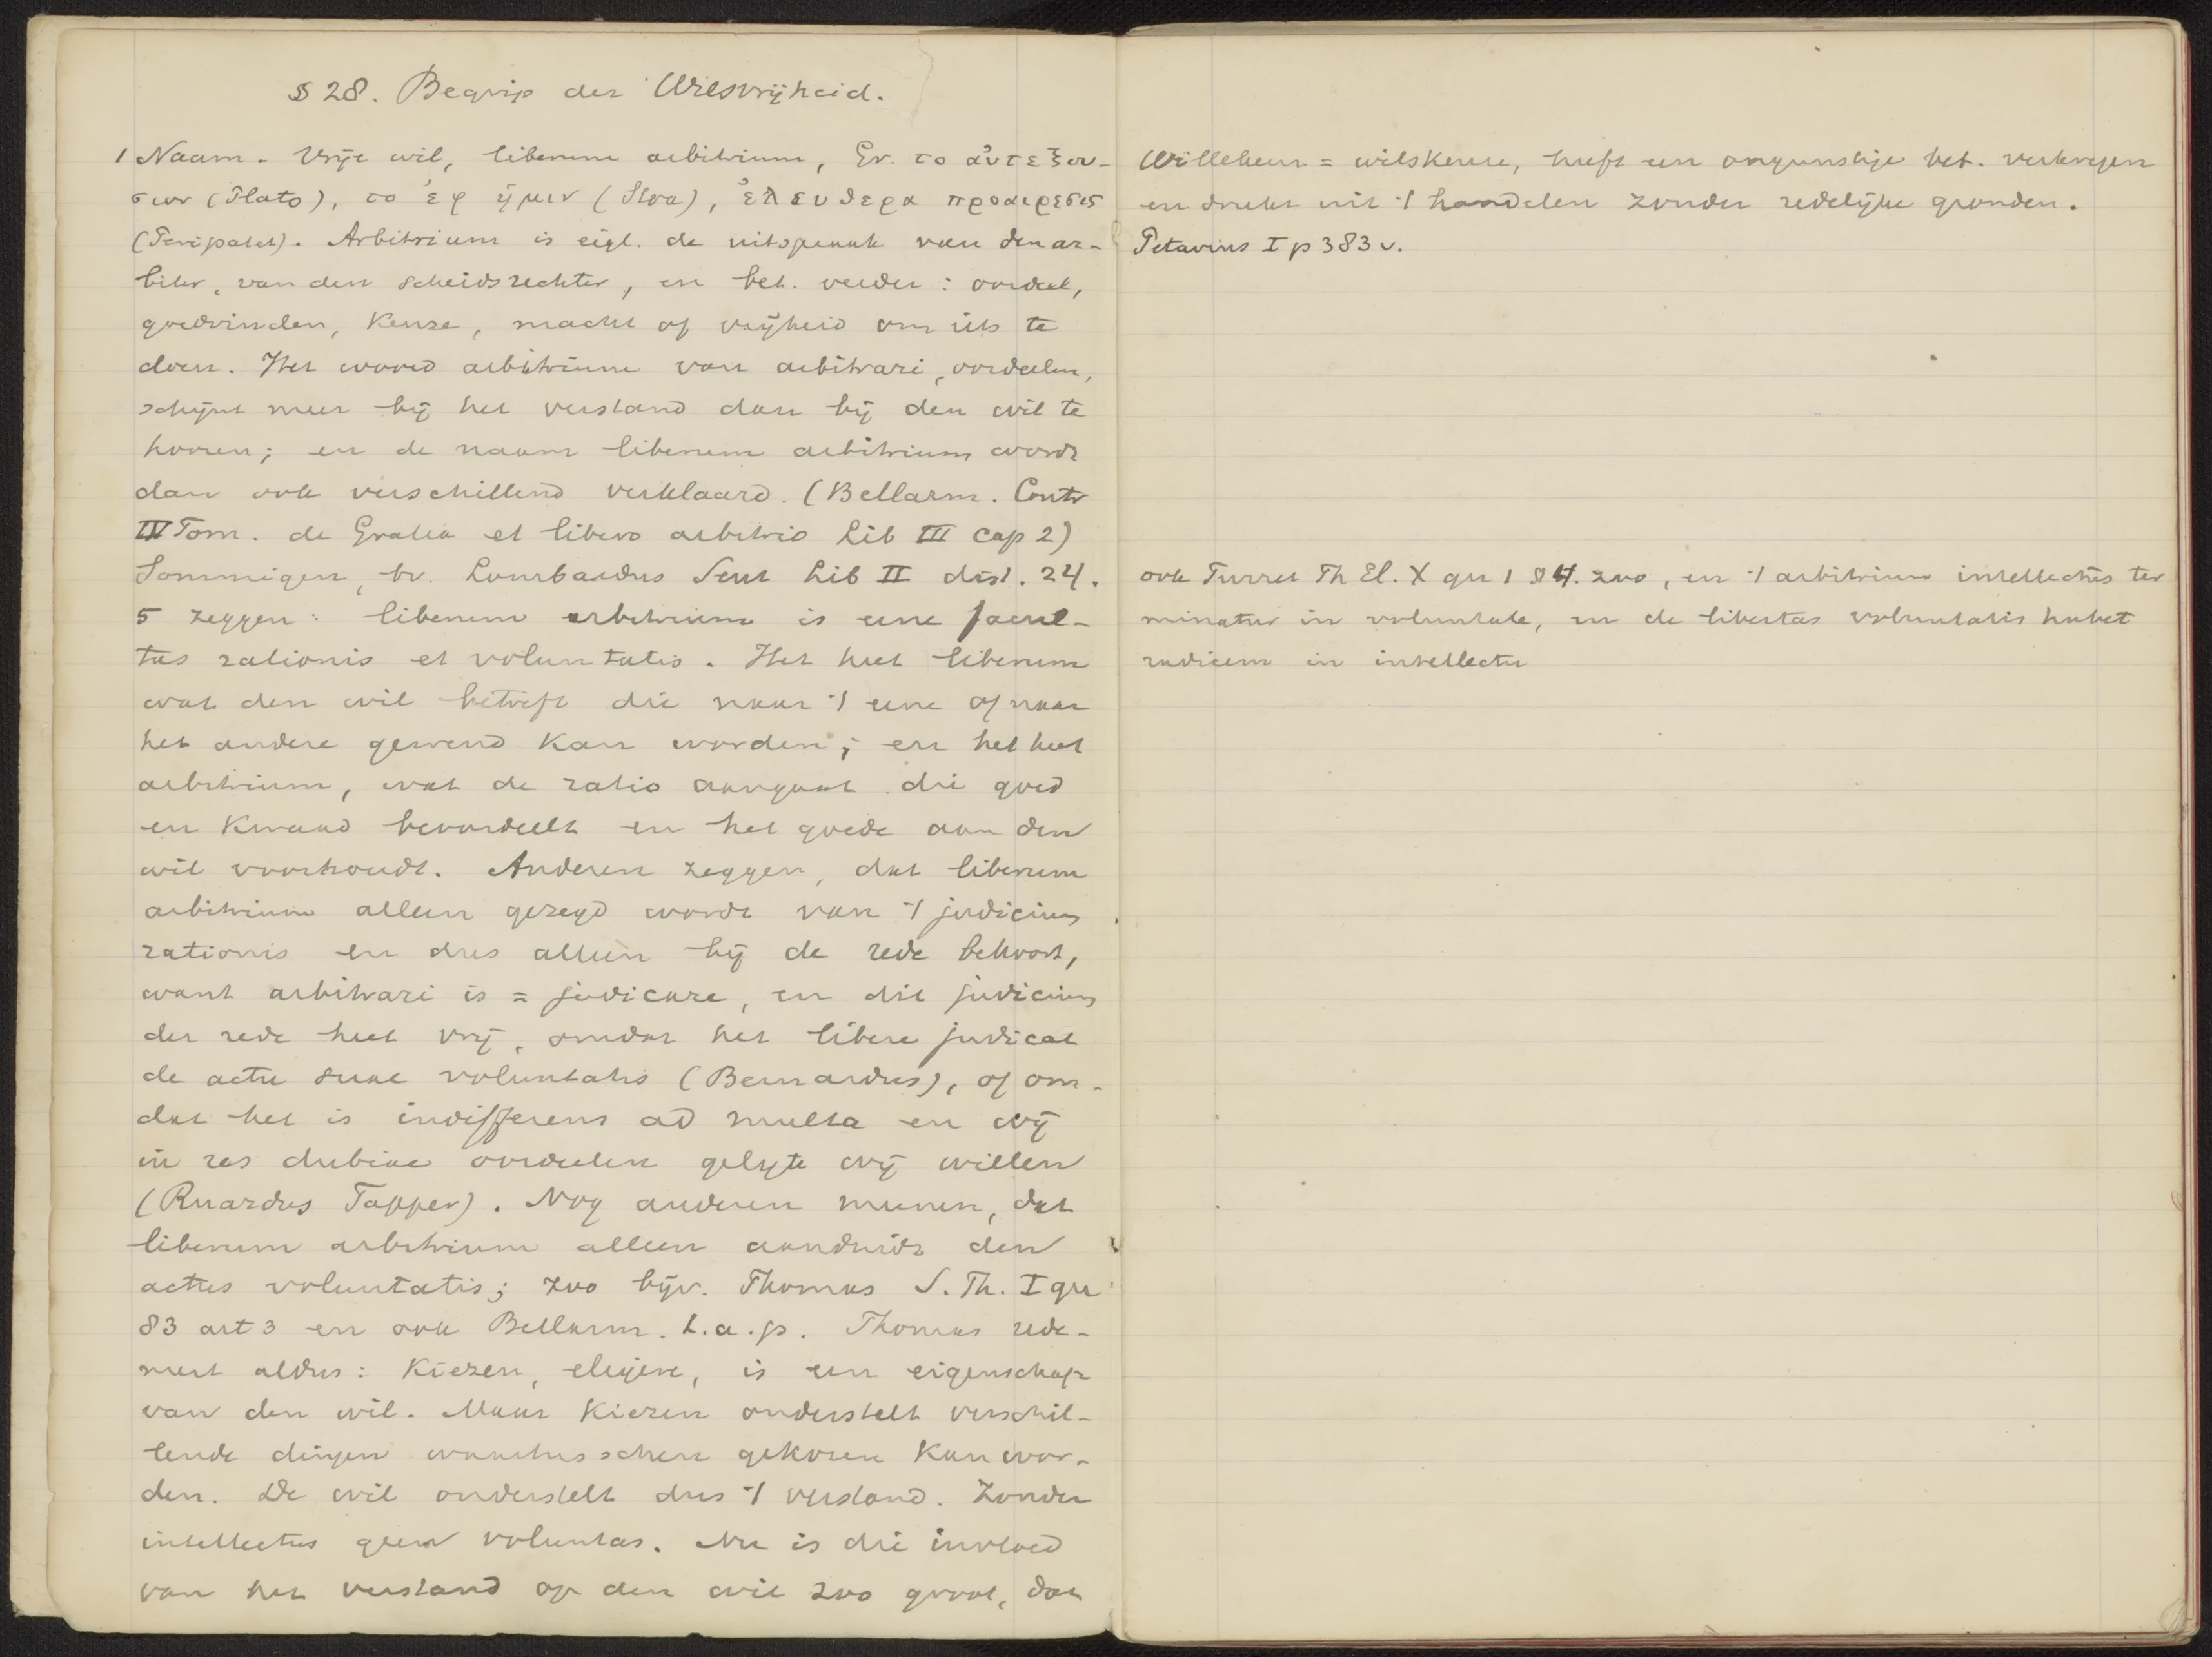 § 28. Begrip der Wilsvrijheid.
1 Naam. Vrije wil, liberum arbitrium, Gr. το ἀυτεξου-
σιον (Plato), το ἐφ ἡμιν (Stoa), ἐλευθερα προαιρεσις
(Peripatet). Arbitrium is eigl. de uitspraak van den ar-
biter, van den scheidsrechter, en bet. verder: oordeel,
goedvinden, keuze, macht of vrijheid om iets te
doen. Het woord arbitrium van arbitrari, oordeelen,
schijnt meer bij het verstand dan bij den wil te
hooren; en de naam liberum arbitrium wordt
dan ook verschillend verklaard. (Bellarm. Contr
IV Tom. de Gratia et libero arbitrio Lib III cap 2)
Sommigen, bv. Lombardus Sent Lib II dist. 24.
5 zeggen: liberum arbitrium is eene facul-
tas rationis et voluntatis. Het heet liberum
wat den wil betreft die naar 't eene of naar
het andere gewend kan worden; en het heet
arbitrium, wat de ratio aangaat die goed
en kwaad beoordeelt en het goede aan den
wil voorhoudt. Anderen zeggen, dat liberum
arbitrium alleen gezegd wordt van 't judicium
rationis en dus alleen bij de rede behoort,
want arbitrari is = judicare, en dit judicium
der rede heet vrij, omdat het libere judicat
de actu suae voluntatis (Bernardus), of om-
dat het is indifferens ad multa en wij
in res dubiae oordeelen gelijk wij willen
(Ruardus Tapper). Nog anderen meenen, dat
liberum arbitrium alleen aanduidt den
actus voluntatis; zoo bijv. Thomas S. Th. I qu
83 art 3 en ook Bellarm. t.a.p. Thomas rede-
neert aldus: Kiezen, eligere, is een eigenschap
van den wil. Maar kiezen onderstelt verschil-
lende dingen waartusschen gekozen kan wor-
den. De wil onderstelt dus 't verstand. Zonder
intellectus geen voluntas. Nu is die invloed
van het verstand op den wil zoo groot, dat
Willekeur = wilskeure, heeft een ongunstige bet. verkregen
en drukt uit 't handelen zonder redelijke gronden.
Petavius I p 383 v.
ook Turret Th El. X qu 1 § 4. zoo, en 't arbitrium intellectus ter
minatur in voluntate, en de libertas voluntatis habet
radicem in intellectu